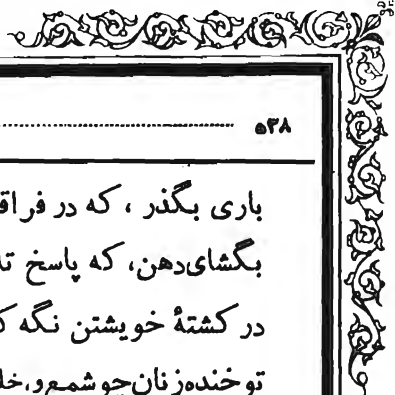 ۵۳۸
باری بگذر ، که در فراق
بگشای دهن، که پاسخ
در کشتهٔ خویشتن نگه
تو خنده زنان چو شمع و